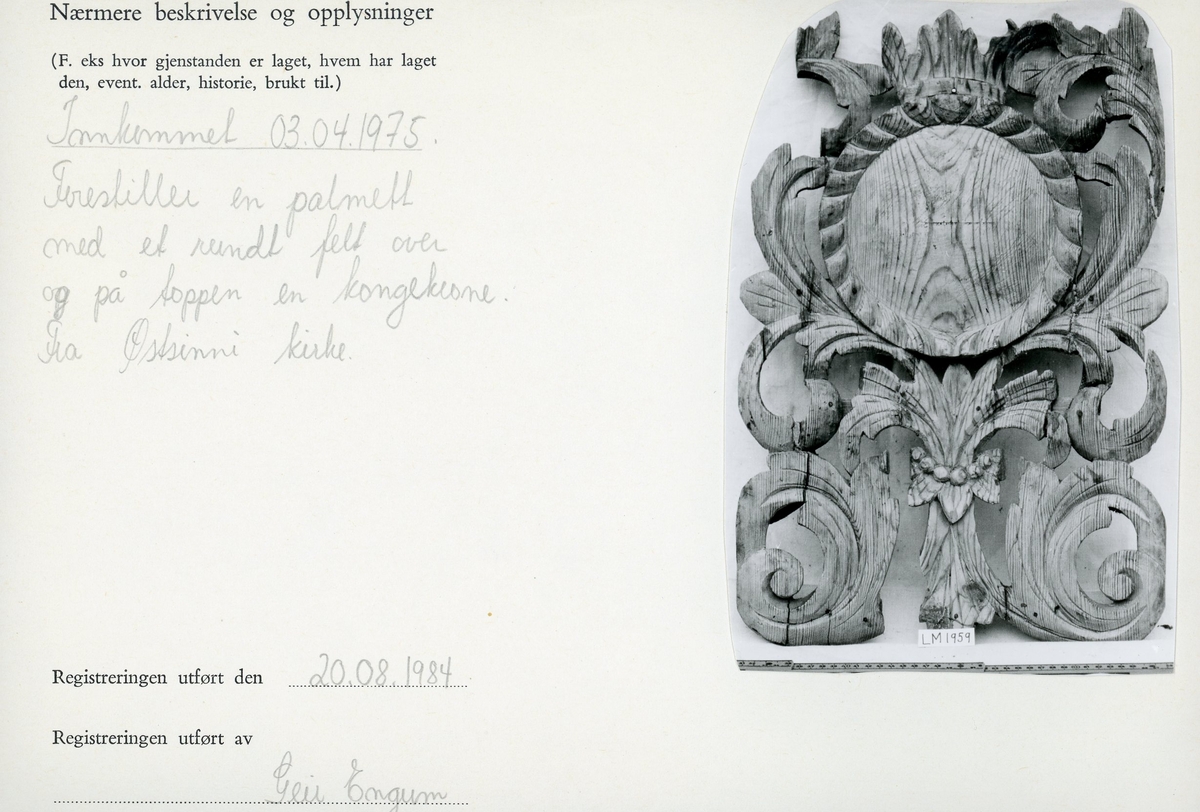 Nærmere beskrivelse og opplysninger
(F. eks hvor gjenstanden er laget, hvem har laget
den, event. alder, historie, brukt til.)
Innkommet 03.04.1975.
Forestiller en palmett
med et rundt felt over
og på toppen en kongekrone.
Fra Østsinni kirke.
LM 1959
Registreringen utført den 20.08.1984
Registreringen utført av
Geir Engum